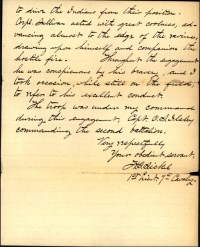 to drive the Indians from their position.
Corpl. Sullivan acted with great coolness, ad-
vancing almost to the edge of the ravine,
drawing upon himself and companion the
hostile fire. Throughout the engagement
he was conspicuous for his bravery, and I
took occasion, while still on the field,
to refer to his excellent conduct.
The troop was under my command
during this engagement, Capt. C. S. Ilsley
commanding the second battalion.
Very respectfully
Your obedient servant,
1st Lieut. 7th Cavalry